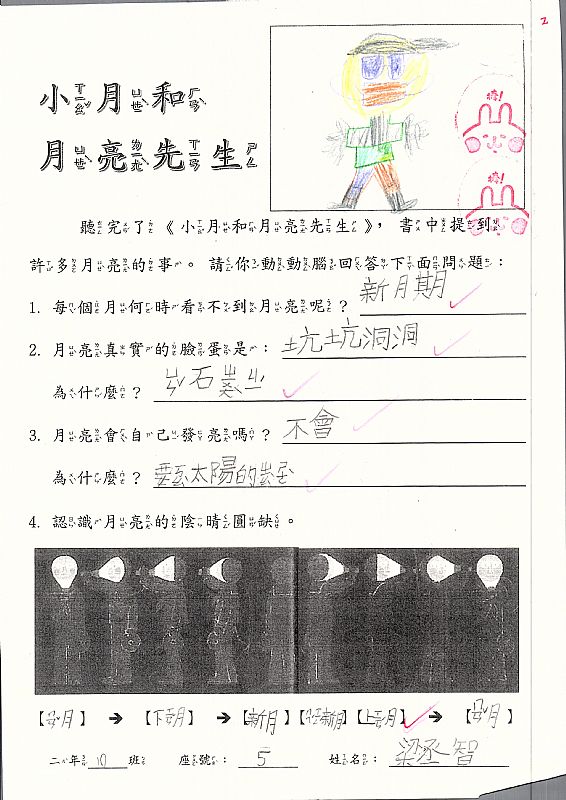 2
小月和
月亮先生
聽完了《小月和月亮先生》，書中提到
許多月亮的事。請你動動腦回答下面問題：
1. 每個月何時看不到月亮呢？新月期
2. 月亮真實的臉蛋是：坑坑洞洞
為什麼？石
3. 月亮會自己發亮嗎？不會
為什麼？太陽的
4. 認識月亮的陰晴圓缺。
【月】→【下月】→【新月】【新月】【上月】→【月】
二年10班 座號：5 姓名：梁丞智